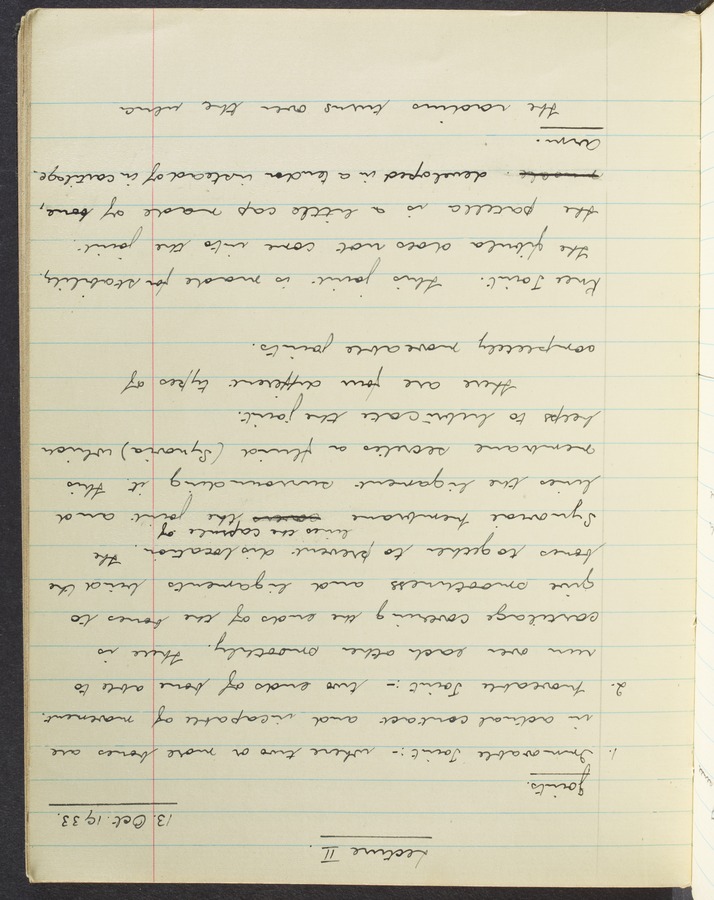 Lecture II.
13. Oct. 1933.
Joints.
1. Immovable Joint :- where two or more bones are
in actual contact and incapable of movement.
2. Moveable Joint :- two ends of bone able to
run over each other smoothly. There is
cartilage covering the ends of the bones to
give smoothness and ligaments bind the
bones together to prevent dislocation. The
lines the capsule of
Synovial membrane covers the joint and
lines the ligament surrounding it. This
membrane secretes a fluid (Synovia) which
helps to lubricate the joint.
There are four different types of
completely moveable joints.
Knee Joint. This joint is made for stability.
The fibula does not come into the joint.
The patella is a little cap made of bone,
developed in a tendon instead of in cartilage.
Arm.
The radius turns over the ulna